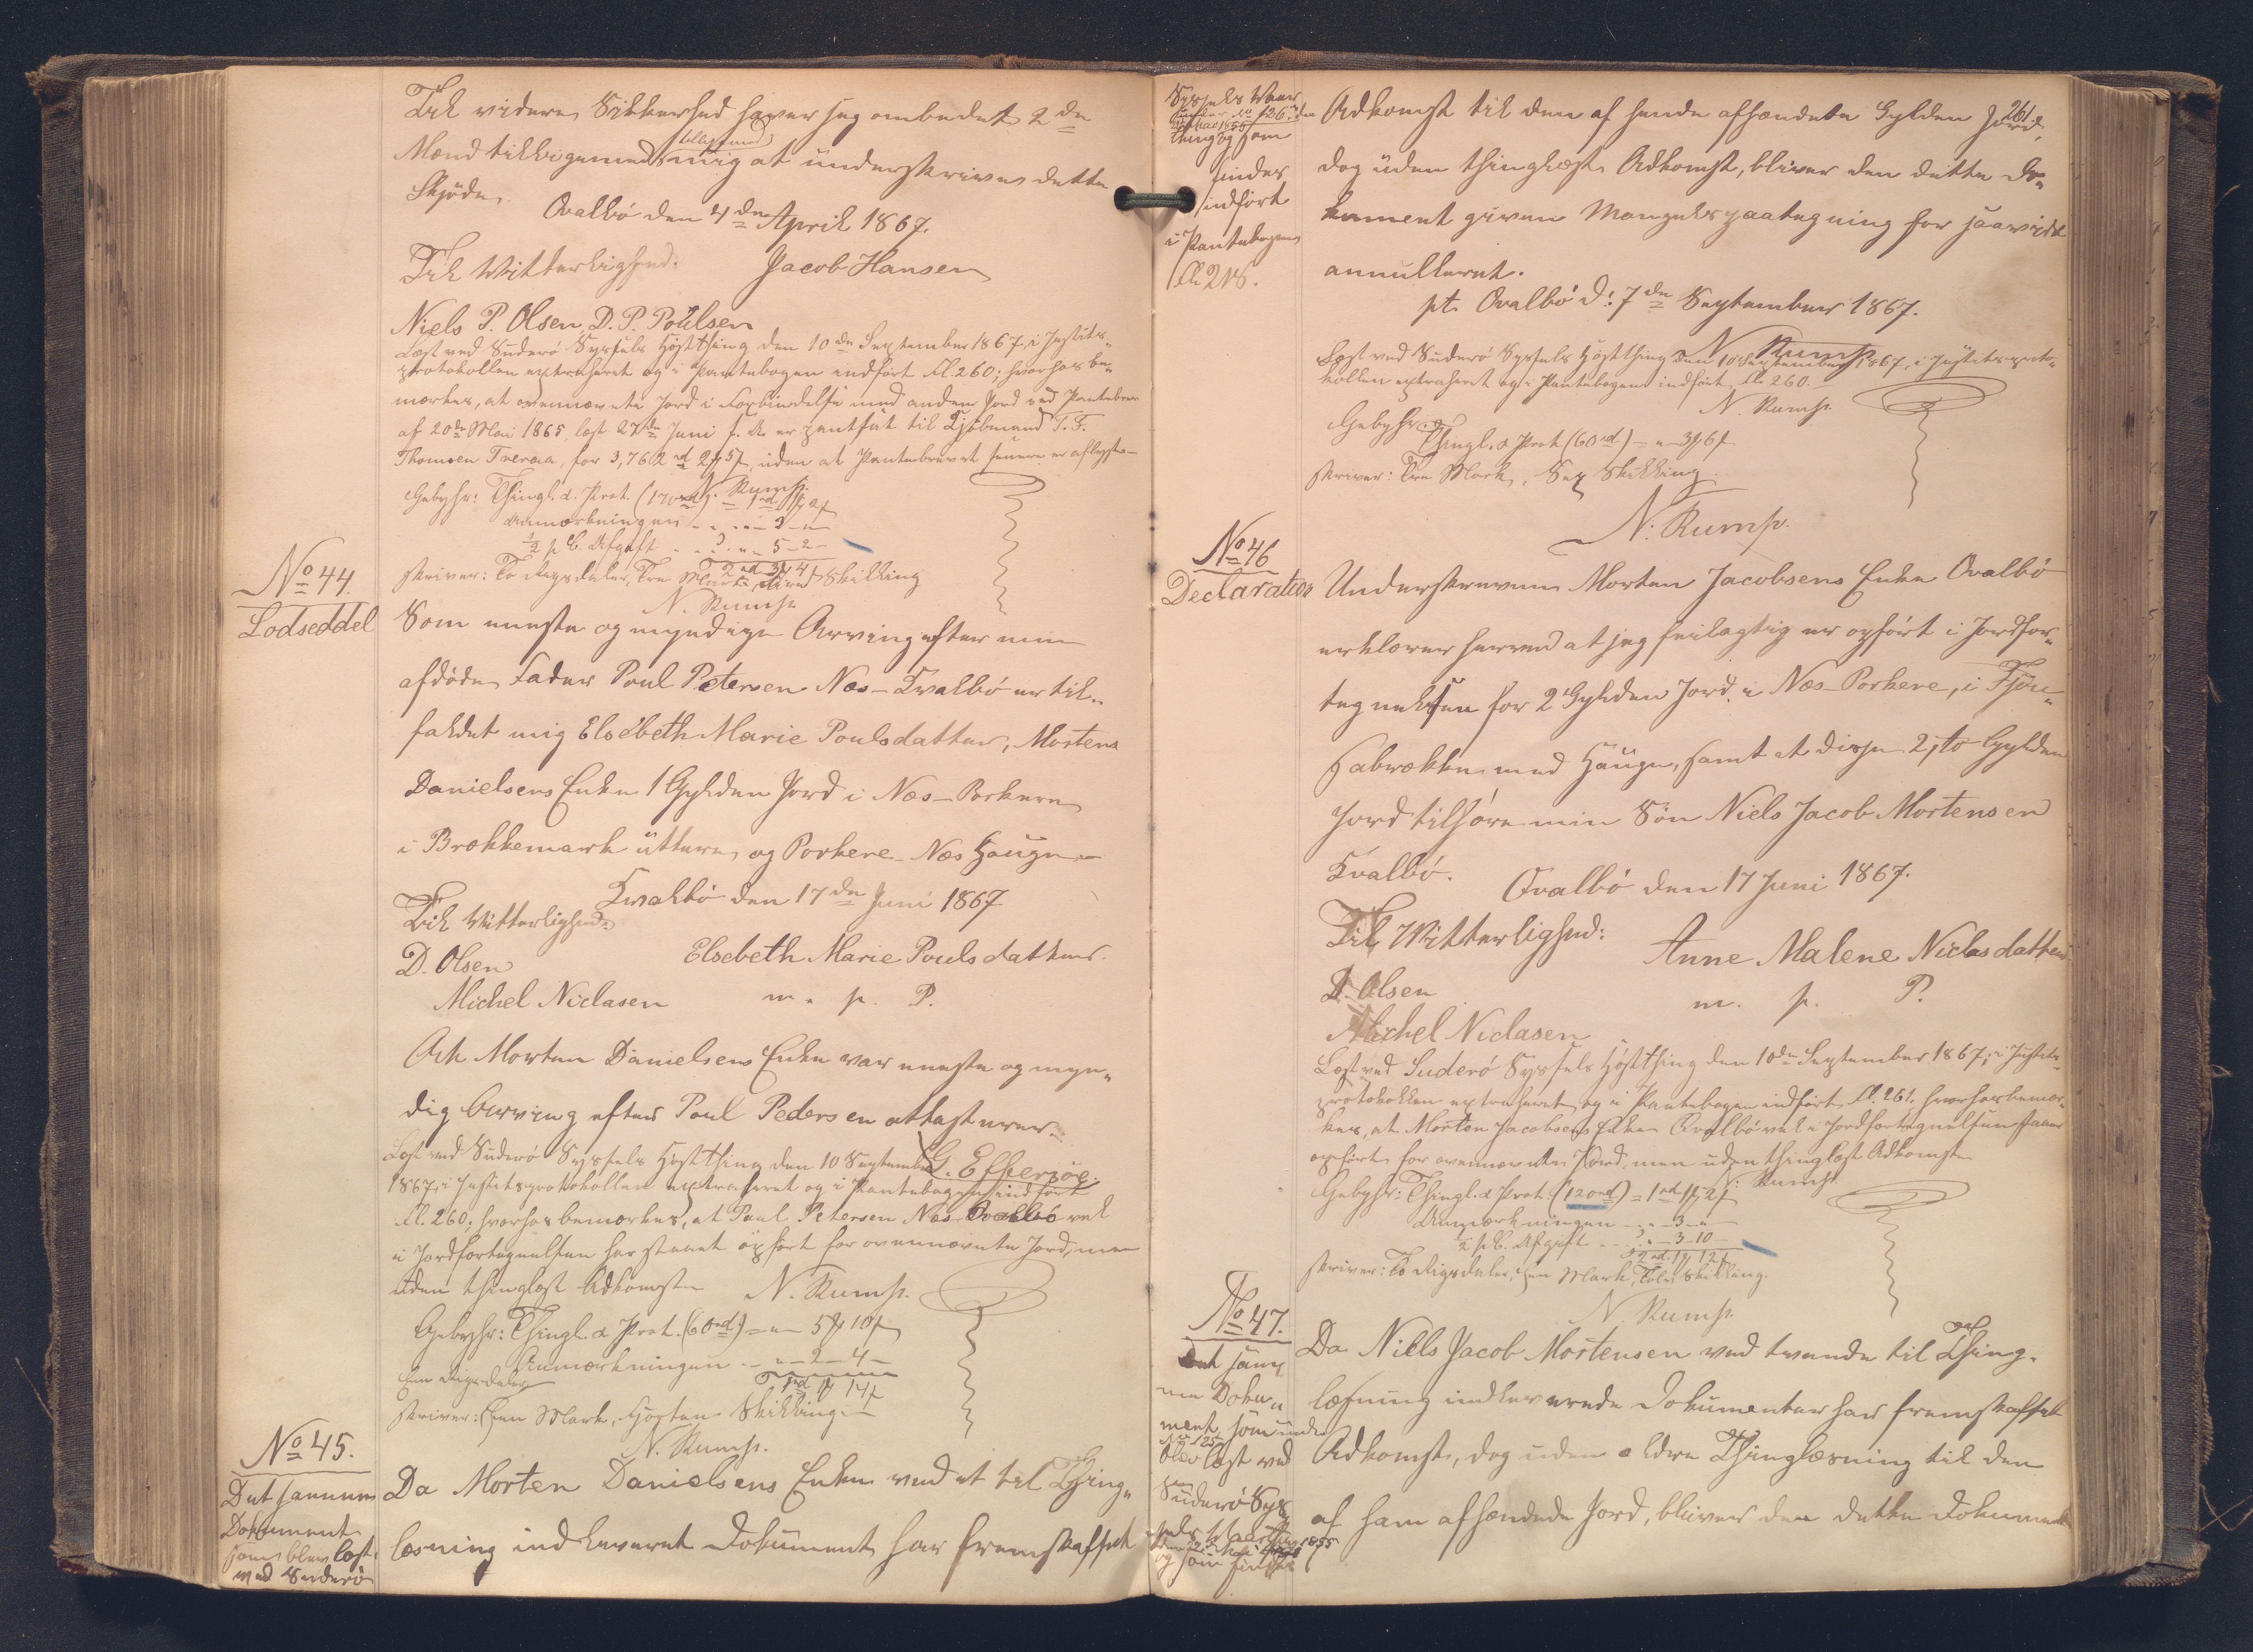 Til videre Sikkerhed haver jeg ombedet 2de
Mænd tilligemed mig at underskrive dette
Skjøde.
Qvalbö den 4de April 1867.
Til Vitterlighed: Jacob Hansen
Niels P. Olsen, D. P. Poulsen
Læst ved Suderö Syssels Høstthing den 10de September 1867, i Justits-
protokollen extraheret og i Pantebogen indført fl. 260; hvorhos be-
mærkes, at ovennævnte Jord i Forbindelse med anden Jord ved Pantebrev
af 20de Mai 1865, læst 27de Juni s. A. er pantsat til Kjøbmand T. F.
Thomsen Tveraa, for 3,762 rd 2 ₰ 5 s, uden at Pantebrevet senere er aflyst
N. Rump.
Gebyhr: Thingl. & Prot. (170 rd) = 1 rd
Anmærkningen - " - 3 - "
½ p C. Afgift - " - 5 - 2 -
2 rd 3 ₰ 4 s
skriver: To Rigsdaler, Tre Mark, fire Skilling
N. Rump.
No 44.
Lodseddel
Som eneste og myndige Arving efter min
afdöde Fader Poul Petersen Næs-Kvalbö er til-
faldet mig Elsebeth Marie Poulsdatter, Mortens
Danielsens Enke 1 Gylden Jord i Næs-Porkere
i Brækkemark uttere, og Porkere-Næs Hauge
Kvalbö den 17de Juni 1867
Til Vitterlighed:
D. Olsen Elsebeth Marie Poulsdatter.
Michel Niclasen m. p. P.
At Morten Danielsens Enke var eneste og myn-
dig Arving efter Poul Pedersen attesterer
G. Effersöe.
Læst ved Suderö Syssels Høstthing den 10 September
1867, i Justitsprotokollen extraheret og i Pantebogen indført
fl. 260; hvorhos bemærkes, at Poul Petersen Næs-Qvalbö vel
i Jordfortegnelsen har staaet opført for ovennævnte Jord, men
uden thinglæst Adkomst N. Rump.
Gebyhr: Thingl. & Prot. (60 rd) = " - 5 ₰ 10 s
Anmærkningen - " - 2 - 4 -
1 rd 2 ₰ 14 s
Een Rigsdaler
skriver: Een Mark, fjorten Skilling
N. Rump.
No 45.
Det samme
Dokument
som blev læst
ved Suderö
Da Morten Danielsens Enke ved et til Thing-
læsning indleveret Dokument har fremskaffet
Syssels Vaar
thing og som
findes
indført
i Pantebogen
fl 218.
261.
Adkomst til den af hende afhændede Gylden Jord,
dog uden thinglæst Adkomst, bliver den dette Do-
kument givne Mangelspaategning for saavidt
annulleret.
pt. Qvalbö d: 7de September 1867.
N. Rump
Læst ved Suderö Syssels Høstthing den 10 September 1867, i Justitsproto-
kollen extraheret og i Pantebogen indført, fl. 260.
N. Rump.
Gebyhr:
Thingl. & Prot. (60 rd) = " - 3 ₰ 6 s
skriver: Tre Mark, Sex Skilling.
N. Rump.
No 46
Declaration
Underskrevne Morten Jacobsens Enke Qvalbö
erklærer herved at jeg feilagtig er opført i Jordfor-
tegnelsen for 2 Gylden Jord i Næs-Porkere, i
med Hauge, samt at disse 2, to Gylden
Jord tilhöre min Sön Niels Jacob Mortensen
Kvalbö. Qvalbö den 17 Juni 1867.
Til Vitterlighed:
Anne Malene Niclasdatter
D. Olsen m. p. P.
Michel Niclasen
Læst ved Suderö Syssels Høstthing den 10de September 1867, i Justits-
protokollen extraheret og i Pantebogen indført fl. 261. hvorhos bemær-
kes, at Morten Jacobsens Enke Qvalbö vel i Jordfortegnelsen staaer
opført for ovennævnte Jord, men uden thinglæst Adkomst
N. Rump.
Gebyhr: Thingl. & Prot. (120 rd) = 1 rd 1 ₰ 2 s
Anmærkningen - " - 3 - "
½ p C. Afgift - " - 3 10
2 rd 1 ₰ 12 s
skriver: To Rigsdaler, een Mark, Tolv Skilling.
N. Rump.
No 47.
Det sam
me Doku-
ment, som under
No 125
blev læst ved
Suderö Sys
og som findes
Da Niels Jacob Mortensen ved tvende til Thing-
læsning indleverede Dokumenter har fremskaffet
Adkomst, dog uden ældre Thinglæsning til den
af ham afhændede Jord, bliver den dette Dokument